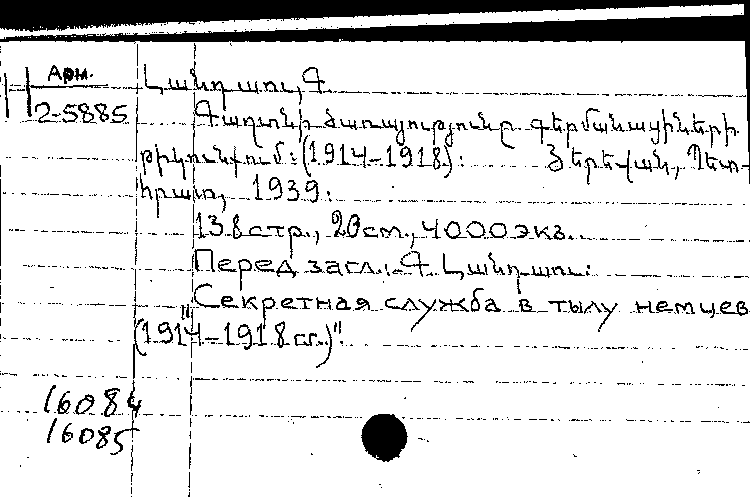 Арм.
2-5885
Լանդաու, Գ.
Գաղտնի ծառայությունը գերմանացիների
թիկունքում: (1914-1918): Յերեվան, Պետ-
հրատ, 1939.
138 стр., 20 см., 4000 экз.
Перед загл.: Գ. Լանդաու.
"Секретная служба в тылу немцев
(1914-1918 гг.)".
16084
16085